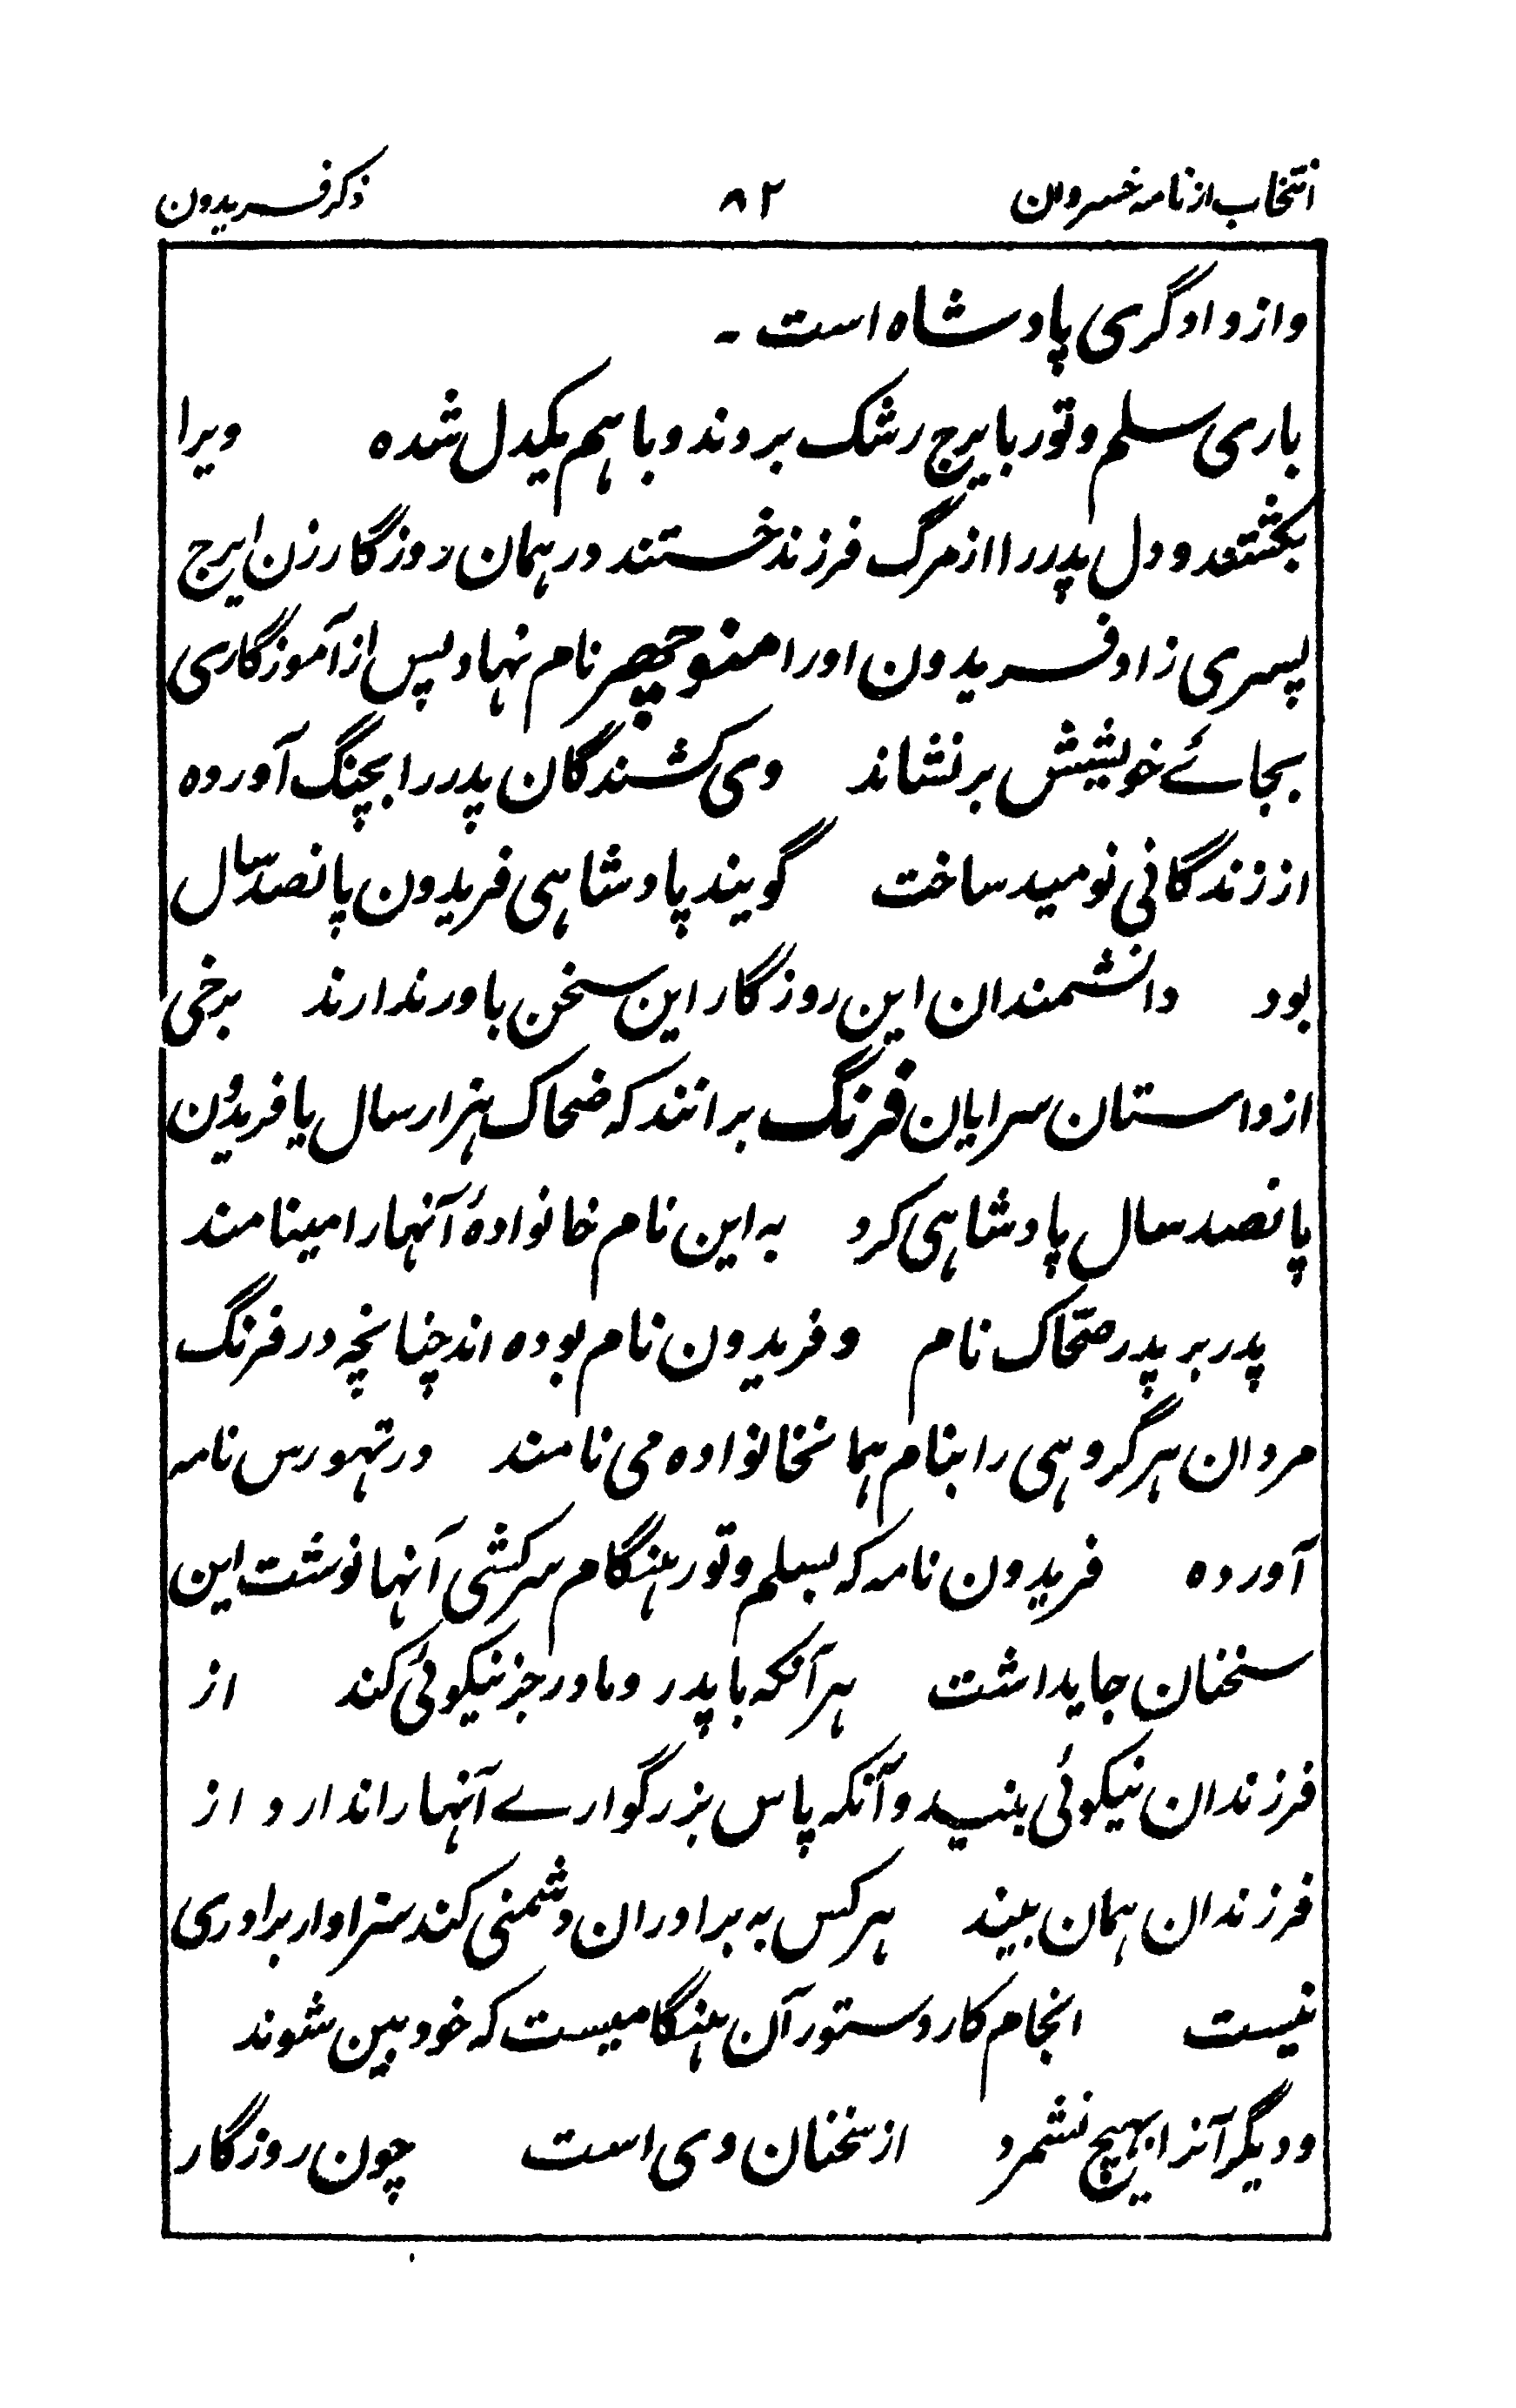 انتخاب از نامه خسروان ۸۲ ذکر فریدون
و از دادگری پادشاه است ۔
باری سلم و تور بایرج رشک بردند و با هم یکدل شده ویرا
بکشتند و دل پدر را از مرگ فرزند خستند در همان روزگار زن ایرج
پسری زاد فریدون اورا منوچهر نام نهاد و پس از آموزگاری
بجائے خویشش بر نشاند وی کشندگان پدر را بچنگ آورده
از زندگانی نومید ساخت گویند پادشاهی فریدون پانصد سال
بود دانشمندان این روزگار این سخن باور ندارند برخی
از داستان سرایان فرنگ برانند که ضحاک هزار سال یا فریدون
پانصد سال پادشاهی کرد به این نام خانوادۀ آنها را مینامند
پدر بر پدر ضحاک نام و فریدون نام بوده اند چنانچه در فرنگ
مردان هر گروهی را بنام همانخانواده می نامند در تهمورس نامه
آورده فریدون نامه که بسلم و تور هنگام سرکشی آنها نوشت این
سخنان جایداشت هر آنکه با پدر و مادر جز نیکوئی کند از
فرزندان نیکوئی بیند و آنکه پاس بزرگوارے آنها را ندارد از
فرزندان همان بیند هر کس به برادران دشمنی کند سزاوار برادری
نیست انجام کار دستور آن هنگامیست که خود بین شوند
و دیگر آنرا بهیچ نشمرد از سخنان وی است چون روزگار